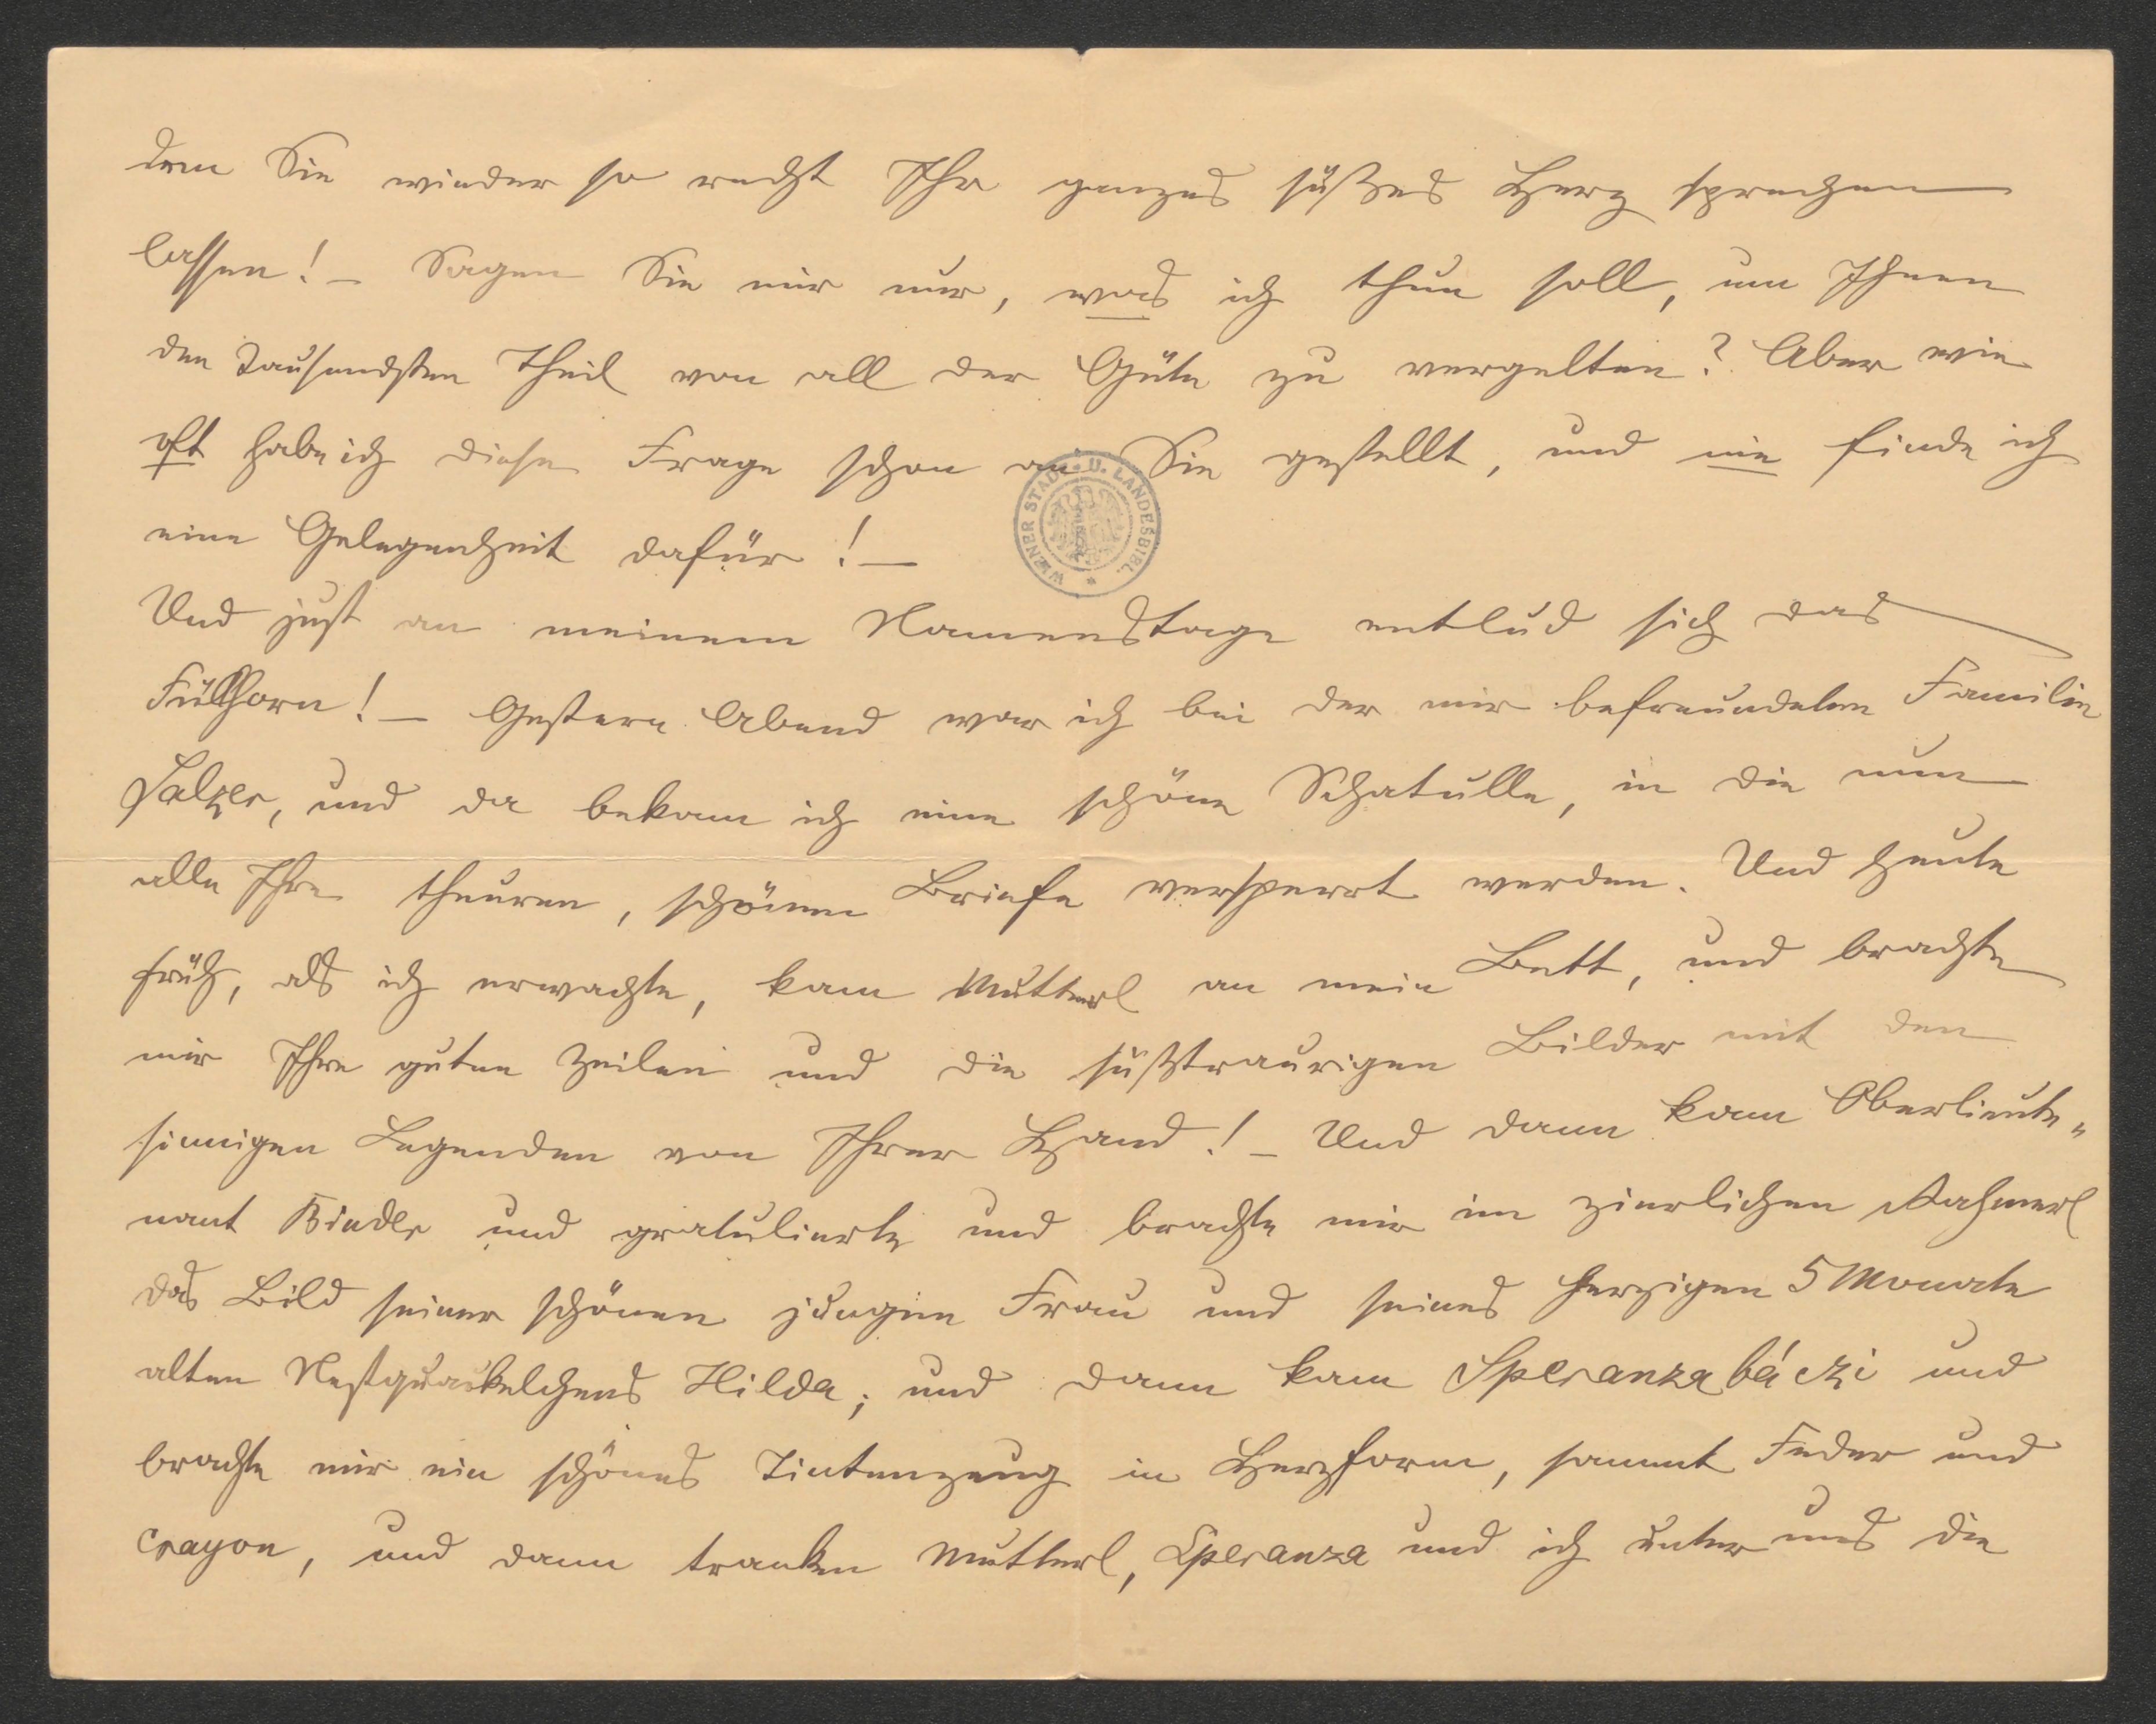 dem Sie wieder so recht Ihr ganzes süßes Herz sprechen
lassen! – Sagen Sie mir nur, was ich thun soll, um Ihnen
den Tausendsten Theil von all der Güte zu vergelten? Aber wie
oft habe ich diese Frage schon an Sie gestellt, und nie finde ich
eine Gelegenheit dafür! –
WIENER STADT- U. LANDESBIBL.
Und just an meinem Namenstage entlud sich das
Füllhorn! – Gestern Abend war ich bei der mir befreundeten Familie
Salzer, und da bekam ich eine schöne Schatulle, in die nun
alle Ihre theuren, schönen Briefe versperrt werden. Und heute
früh, als ich erwachte, kam Mutterl an mein Bett, und brachte
mir Ihre guten Zeilen und die süßtraurigen Bilder mit den
sinnigen Legenden von Ihrer Hand! – Und dann kam Oberlieute„
nant Binder und gratulierte und brachte mir im zierlichen Rahmerl
das Bild seiner schönen jungen Frau und seines herzigen 5 Monate
alten Nestquackelchens Hilda; und dann kam Speranza bácži und
brachte mir ein schönes Tintenzeug in Herzform, sammt Feder und
Crayon, und dann tranken Mutterl, Speranza und ich unter uns die